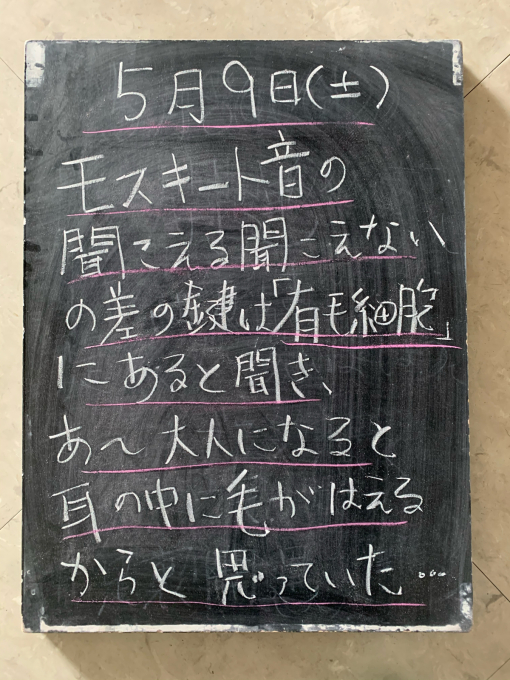 5月9日(土)
モスキート音の
聞こえる聞こえない
の差の鍵は「有毛細胞」
にあると聞き、
あ〜大人になると
耳の中に毛がはえる
からと思っていた…